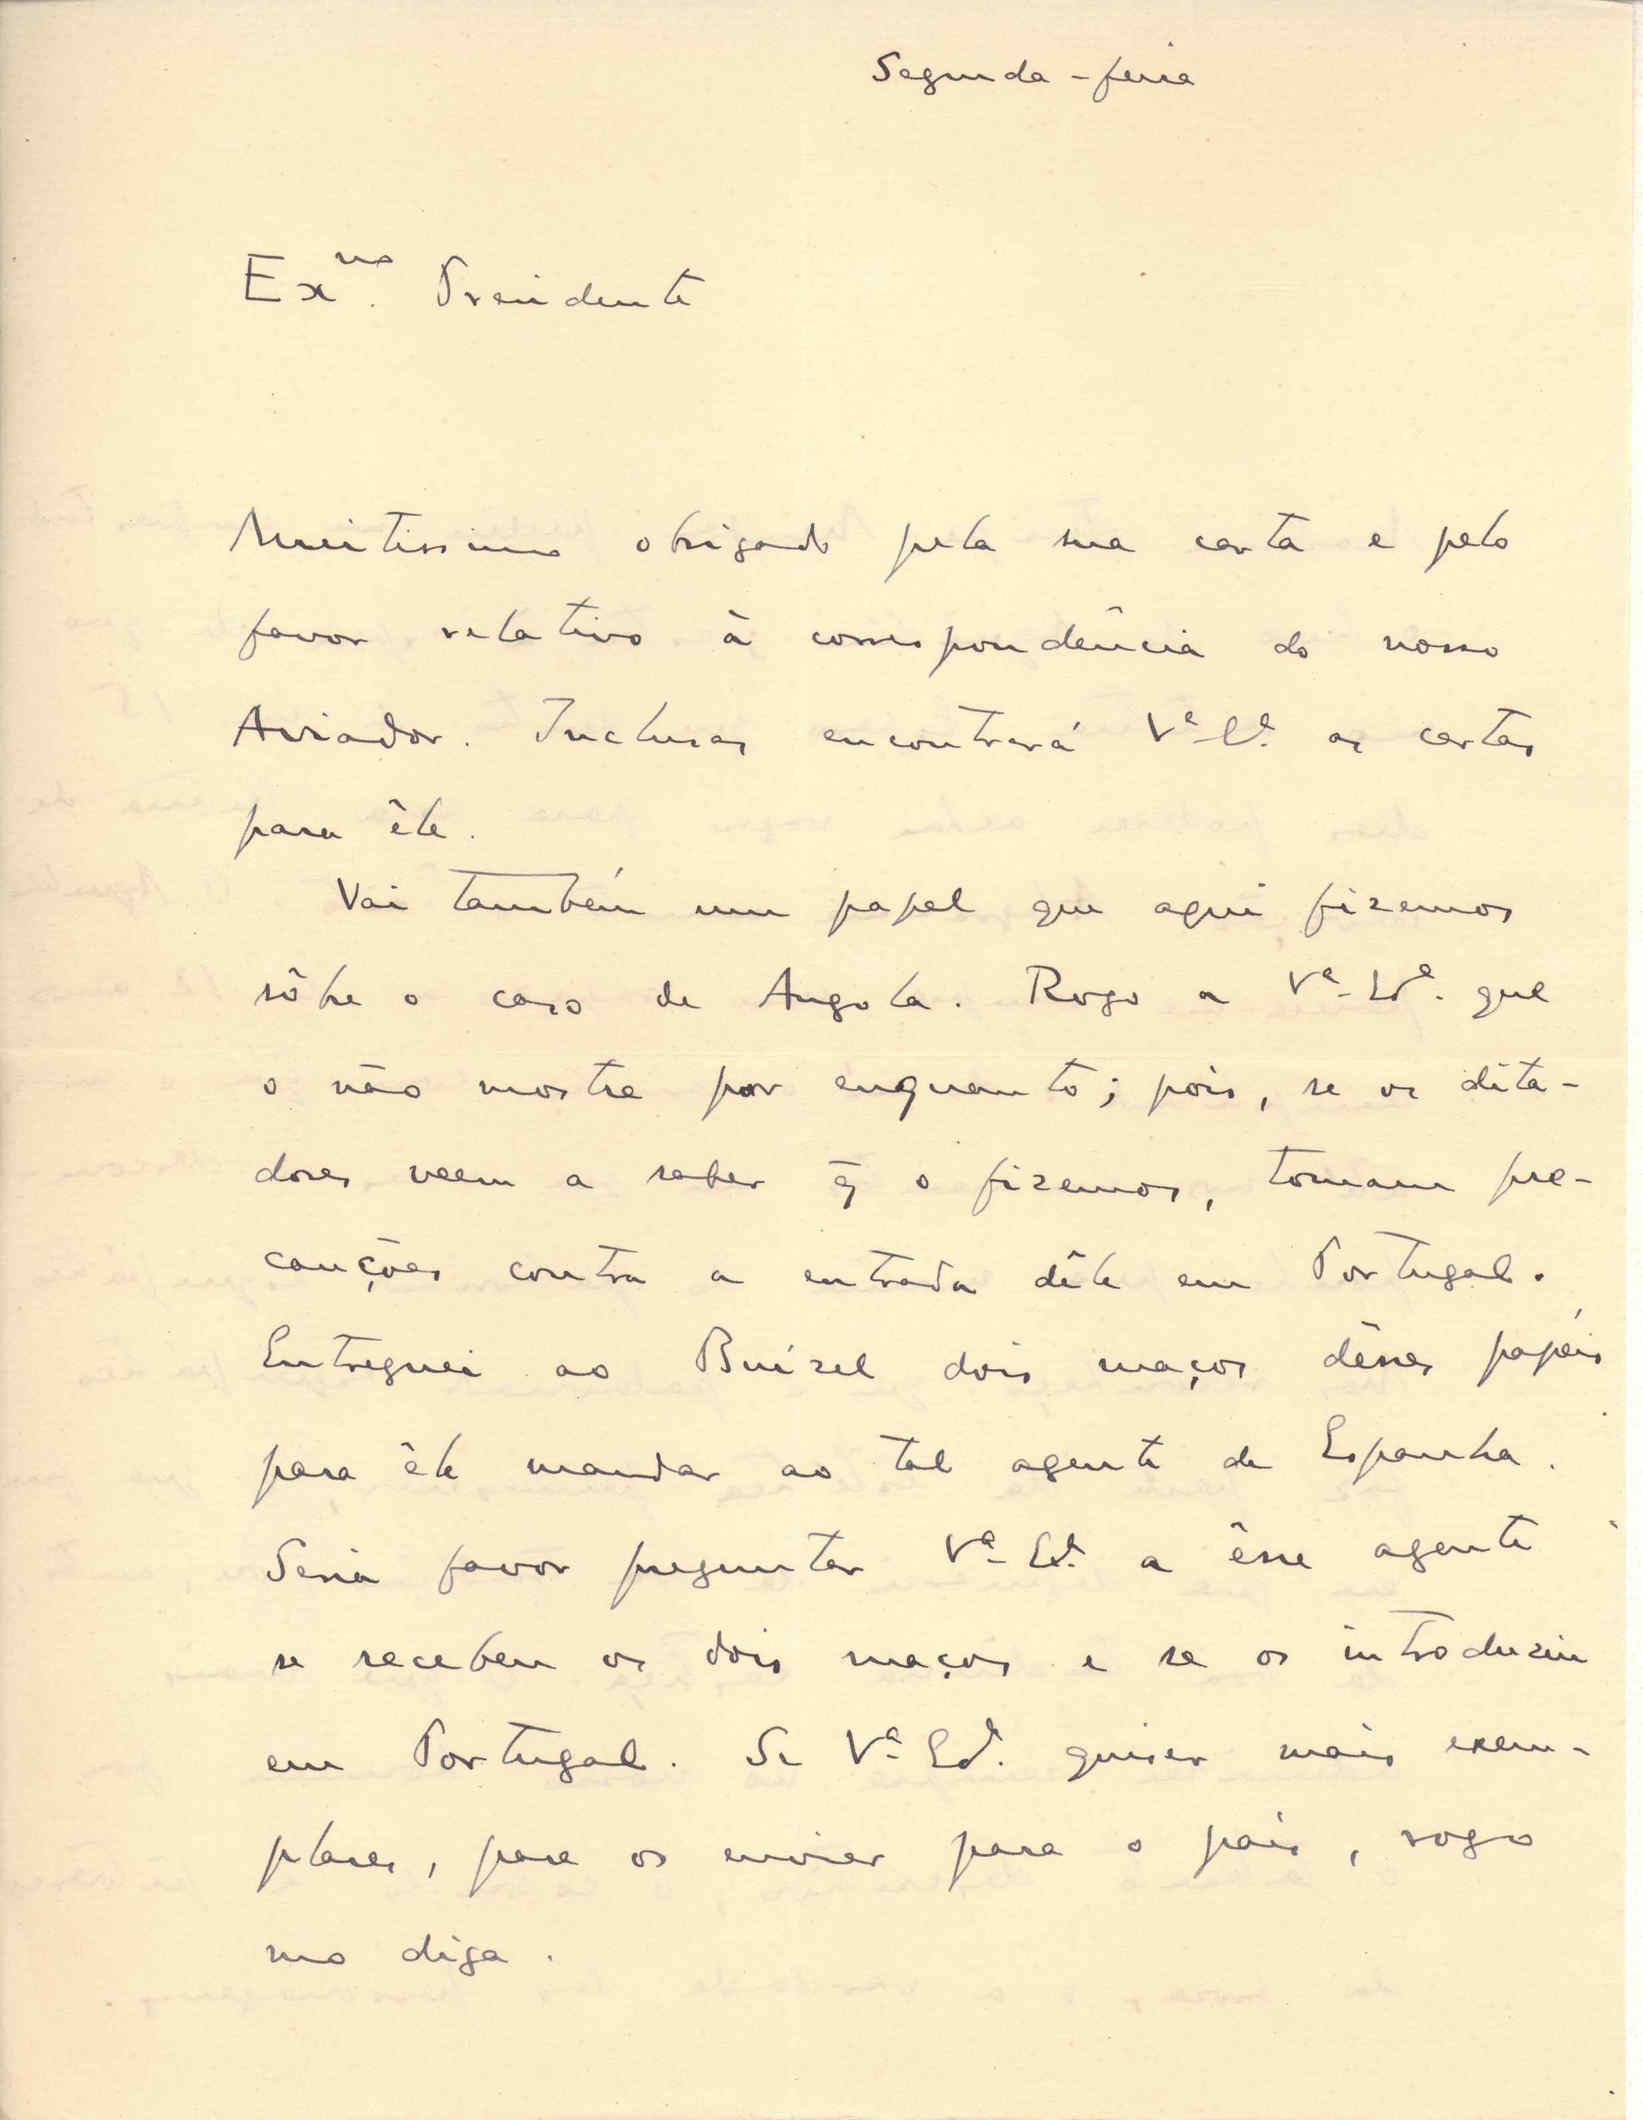 Segunda-feira
Exmo. Presidente
Muitissimo obrigado pela sua carta e pelo
favor relativo à correspondência do nosso
Aviador. Inclusas encontrará Vª Exª. as cartas
para êle.
Vai também um papel que aqui fizemos
sôbre o caso de Angola. Rogo a Vª Exª. que
o não mostre por enquanto; pois, se os dita-
dores veem a saber q̃ o fizemos, tomam pre-
cauções contra a entrada dêle em Portugal.
Entreguei ao Buísel dois maços dêsses papéis
para êle mandar ao tal agente de Espanha.
Seria favor preguntar Vª Exª. a êsse agente
se recebeu os dois maços e se os introduziu
em Portugal. Se Vª Exª. quiser mais exem-
plares, para os enviar para o país, rogo
mo diga.